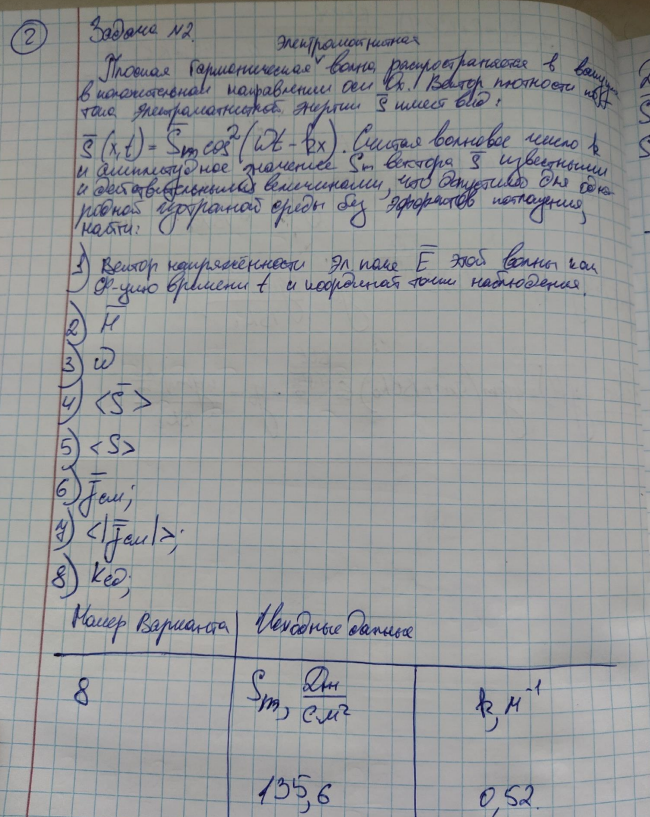 2
Задача №2.
Электромагнитная
Плоская гармоническая волна распространяется в вакууме
в положительном направлении оси Ox. Вектор плотности
тока электромагнитной энергии S̄ имеет вид:
S̄(x,t) = S̄m cos²(ωt - kx). Считая волновое число k
и амплитудное значение Sm вектора S̄ известными
и действительными величинами, что допустимо для одно-
родной изотропной среды без эффектов поглощения,
найти:
1) Вектор напряжённости эл. поля Ē этой волны как
ф-цию времени t и координат точки наблюдения.
2) H̄
3) ω
4) <S̄>
5) <S>
6) j̄см;
7) <|j̄см|>;
8) Kед;
Номер варианта Исходные данные
8 Sm, Дж/с м² k, м⁻¹
135,6 0,52.